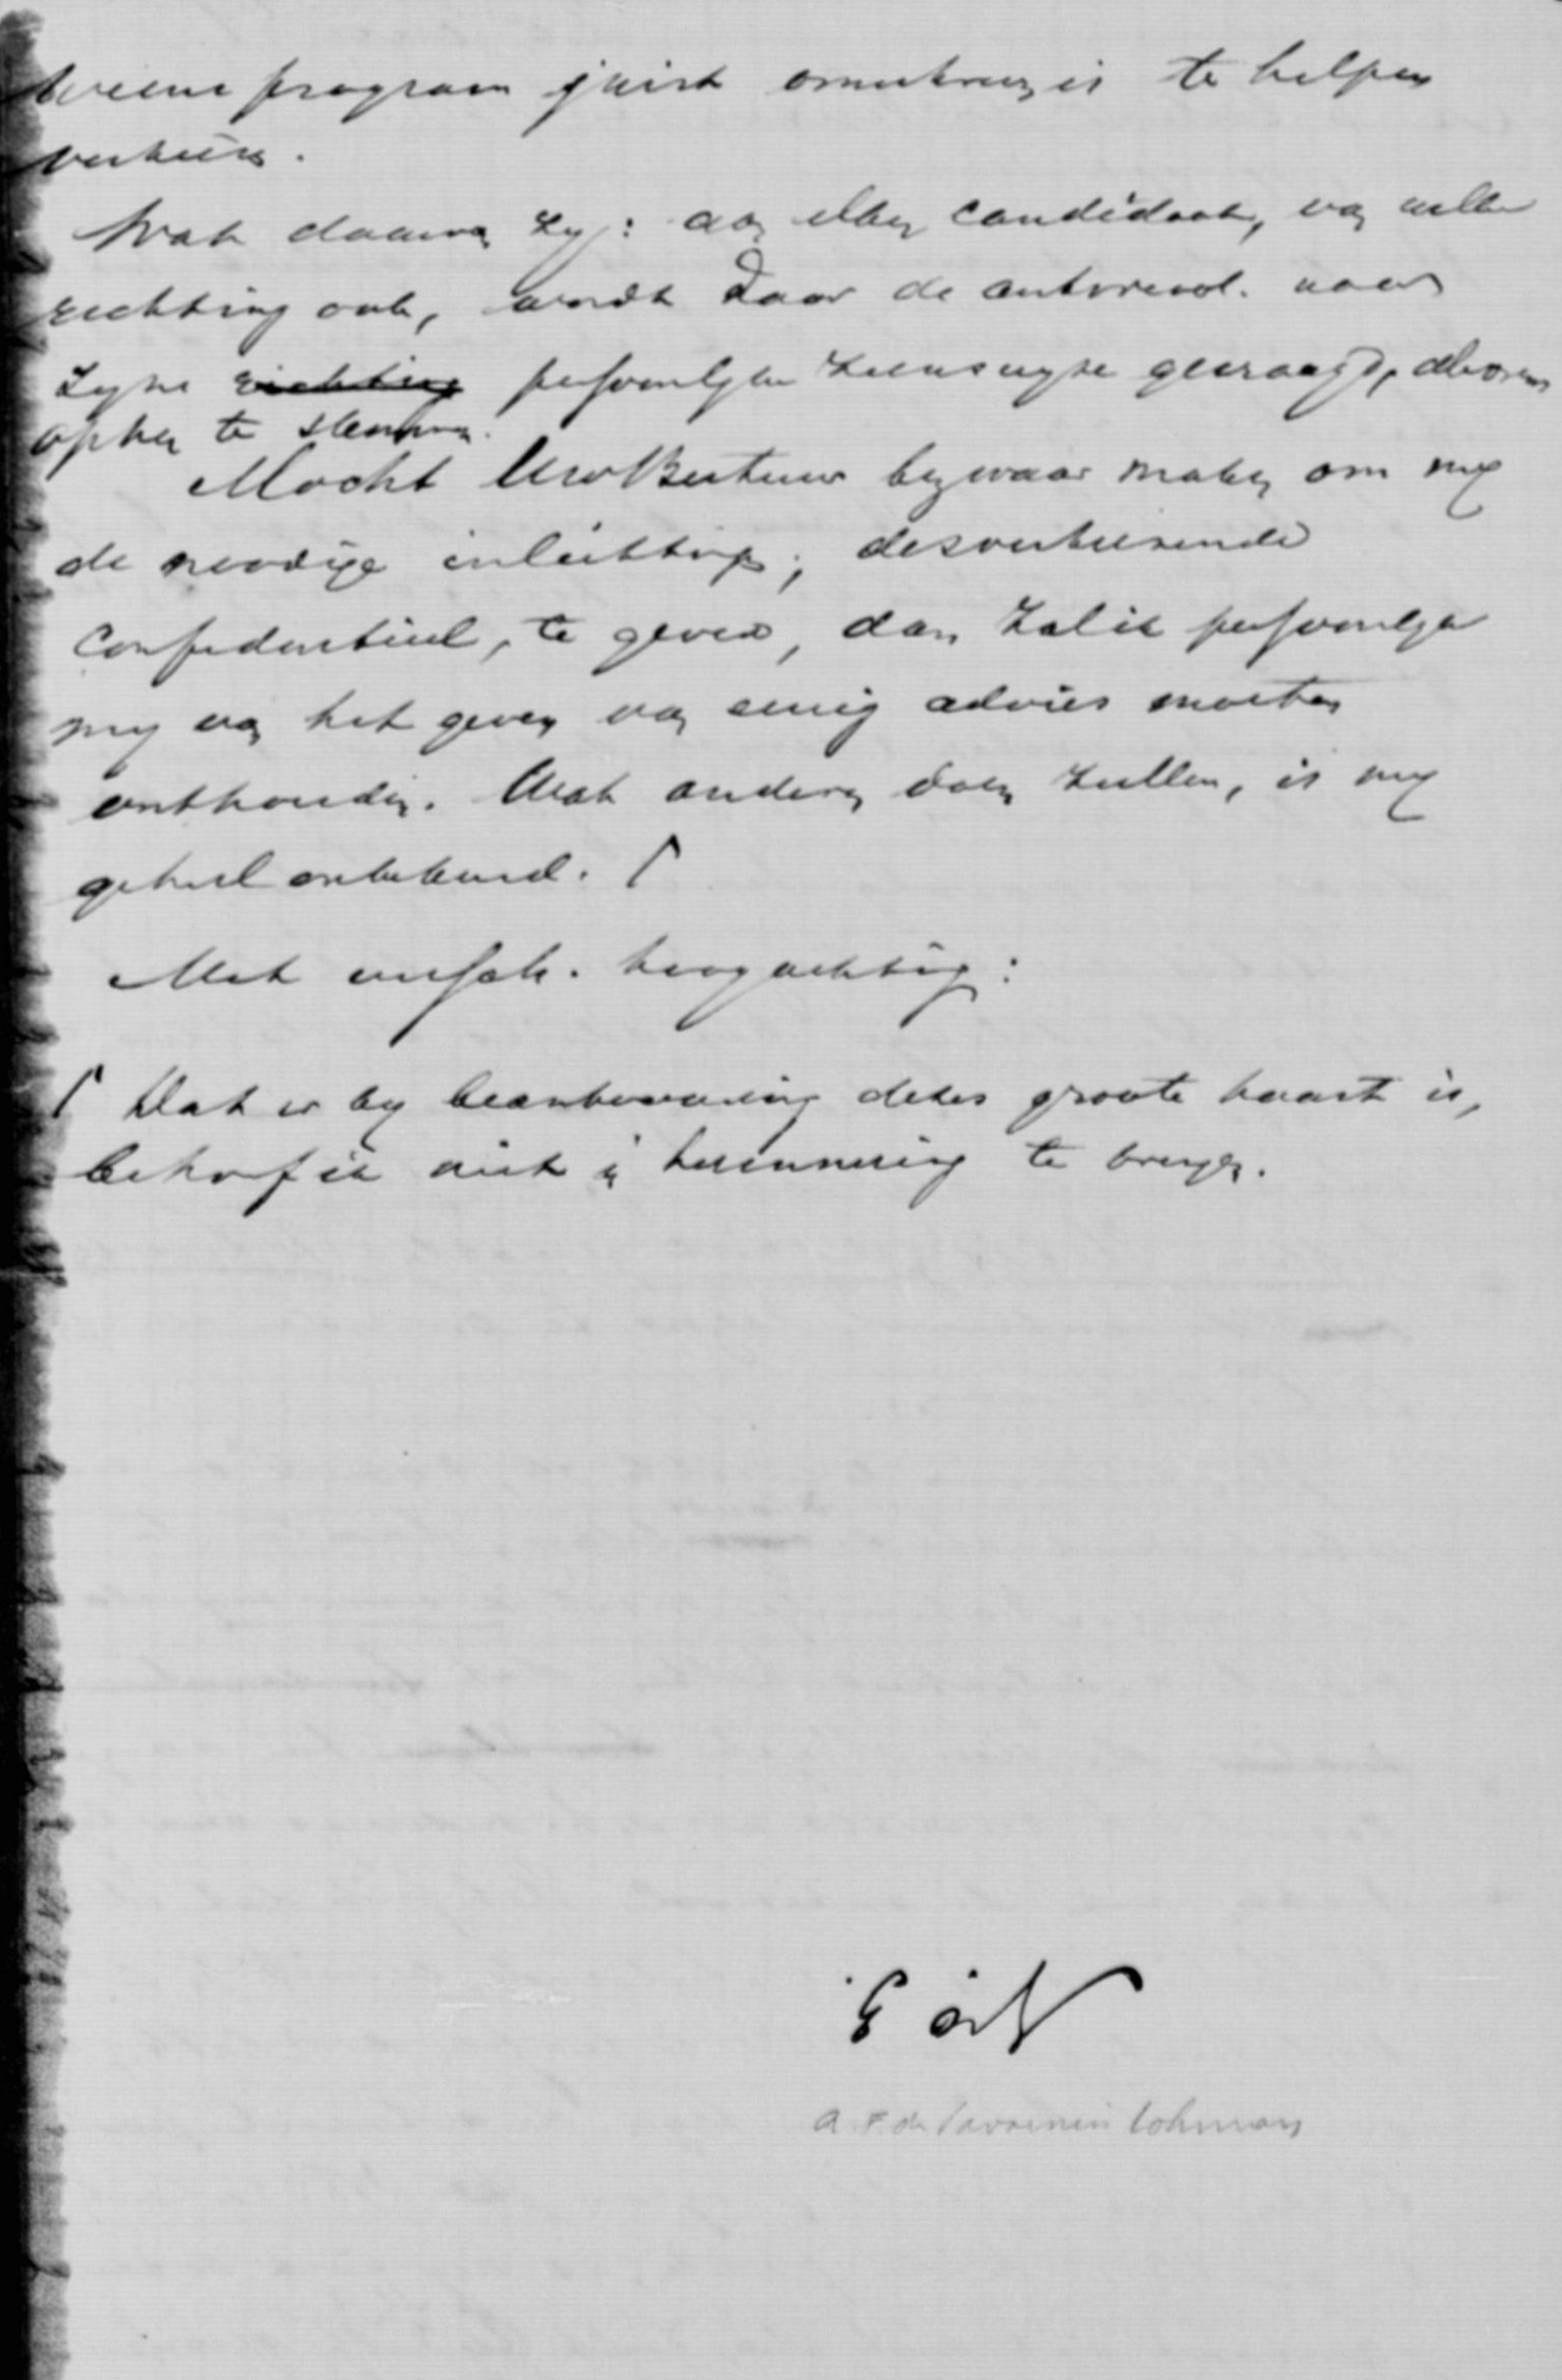 program juist omstreng is te helpen
verkiezen.
Wat daarvan zij: aan elken candidaat, van welke
richting ook, wordt door de antirevol. naar
zijne richting persoonlijke zienswijze gevraagd, alvorens
op hem te stemmen.
Mocht Uw Bestuur bezwaar maken om mij
de noodige inlichting, desverkiezende
confidentieel, te geven, dan zal ik persoonlijk
mij van het geven van eenig advies moeten
onthouden. Wat anderen doen zullen, is mij
geheel onbekend. ⌈
Met achting:
⌈ Dat er bij beantwoording dezes groote haast is,
behoef ik niet in herinnering te brengen.
A F de Savornin Lohman